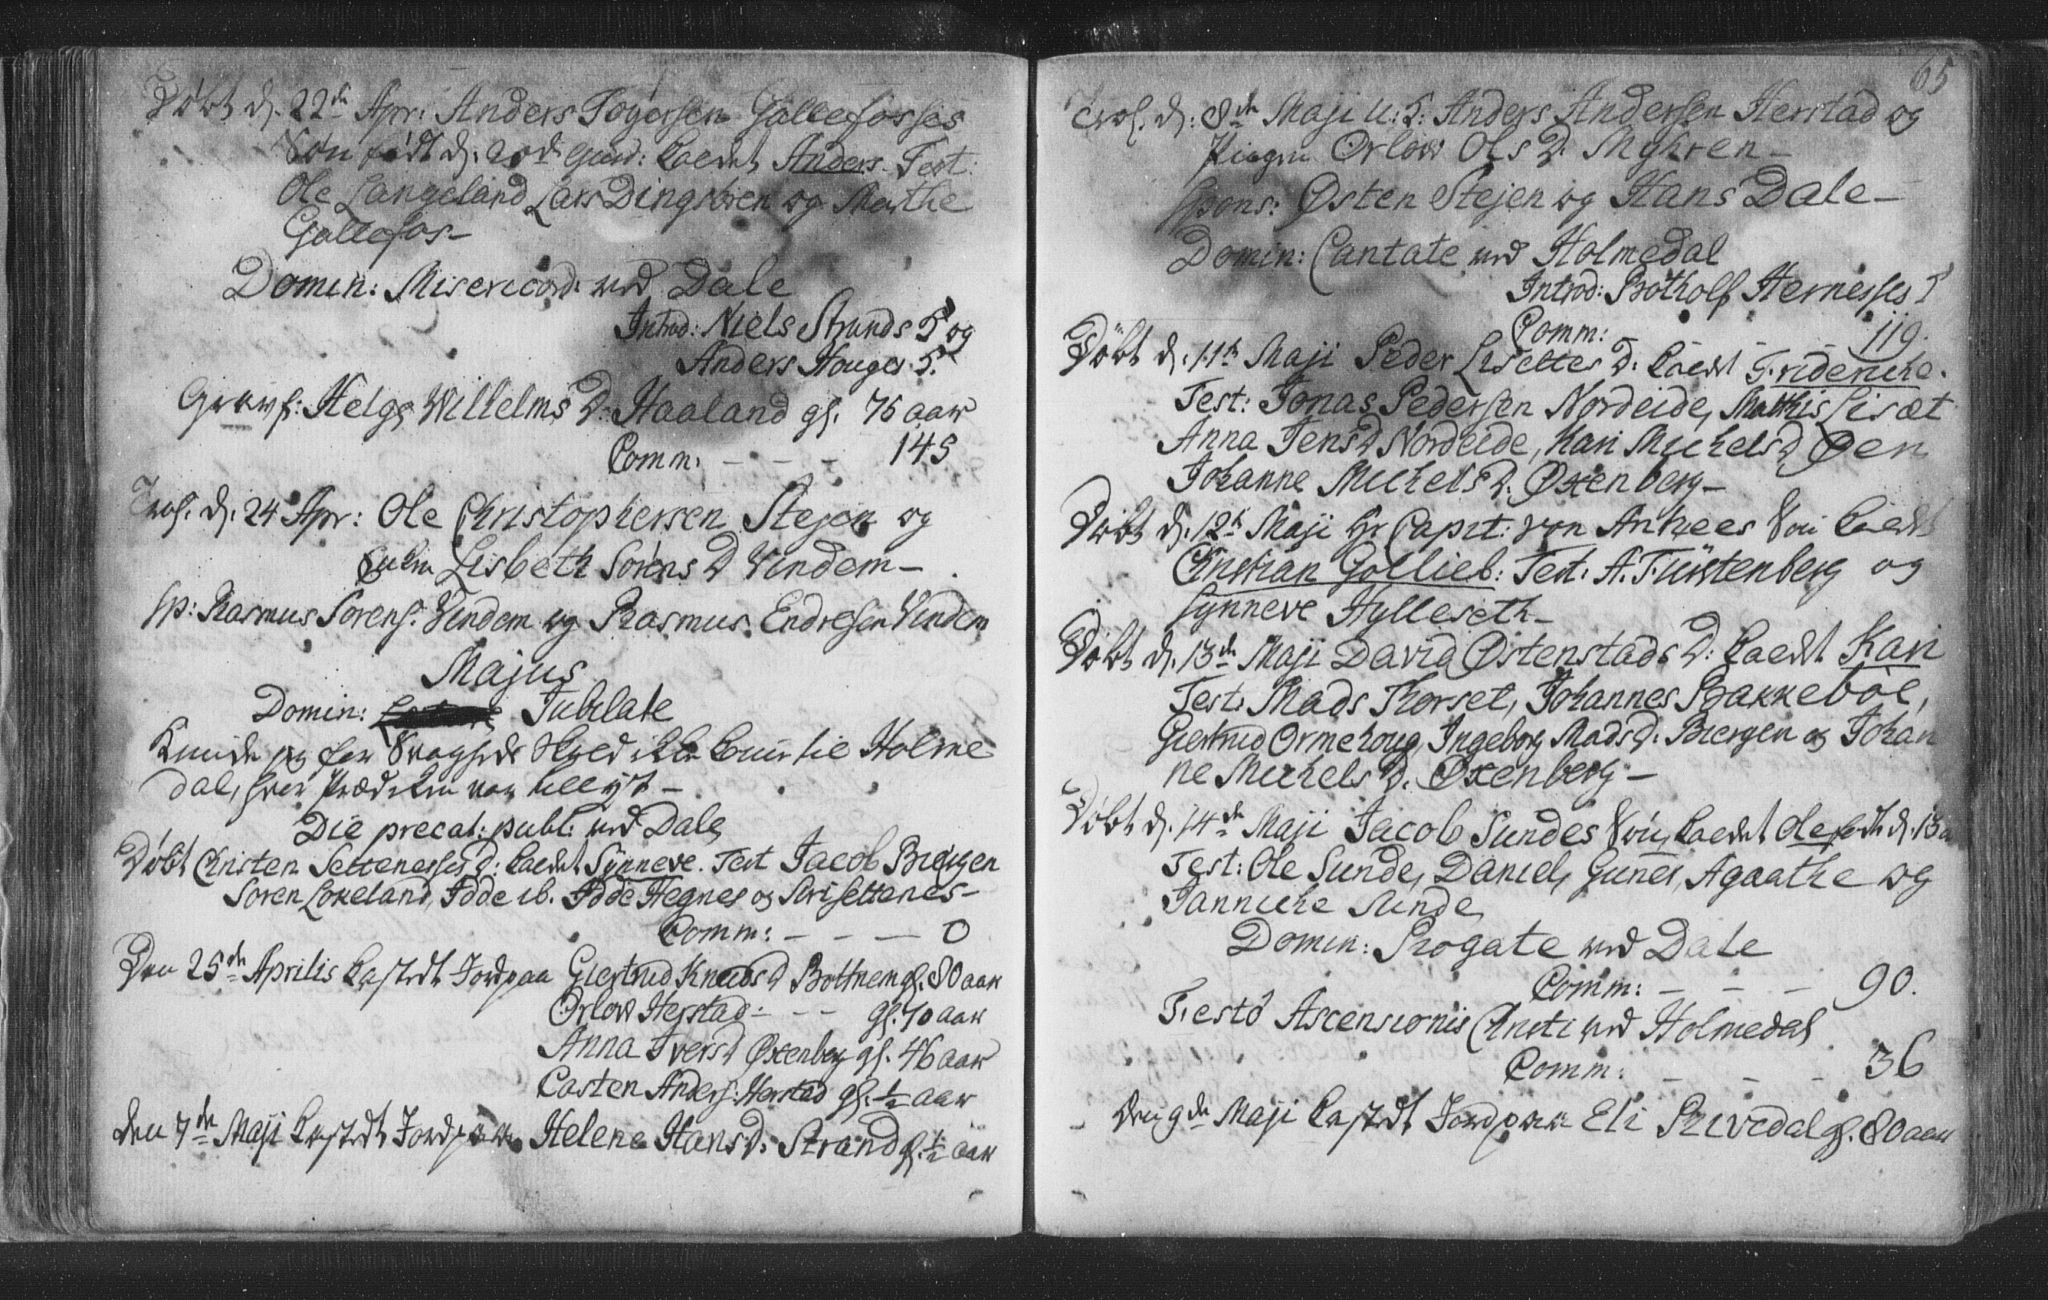 Døbt d. 22de Apr: Anders Togersen Gallefosses
Søn født d. 20de ejusd: kaldet Anders. Test:
Ole Langeland Lars Dingsøren og Marthe
Gallefos–
Domin: Misericord: ved Dale
Introd: Niels Strands H og
Anders Houges H.
Gravf: Helge Willelms D: Haaland gl. 76 aar
Comm: – – – 145
Trol. d. 24 Apr: Ole Christophersen Stejen og
Lisbeth Sørens D Vindem–
Sp: Rasmus Sorens. Vindem og Rasmus Endresen Vindem
Majus
Domin: Jubilate
Kunde jeg for Svagheds Skyld ikke komme til Holme
dal, hvor Prædiken var tillyst–
Die precat: publ: ved Dale
Døbt Christen Settenesses D: kaldet Synneve. Test Jacob Biergen
Soren Lokeland, Idde ib. Idde Hegnes og Siri Settenes–
Comm: – – – 0
Den 25de Aprilis kastedt Jord paa Giertrud Knuds D Bottnem gl. 80 aar
Orlow Herstad – – – gl. 70 aar
Anna Ivers D Oxenberg gl. 46 aar
Casten Anders: Herstad gl. ½ aar
den 7de Maji kastedt Jord paa Helene Hans D: Strand gl. ½ aar
65
Trol. d. 8de Maji U. K: Anders Andersen Herstad og
Pigen Orlow Ols D. Myhren–
Spons: Østen Stejen og Hans Dale–
Domin: Cantate ved Holmedal
Introd: Botholf Hernesses H
Comm: – – 119.
Døbt d. 11te Maji Peder Lisettes D: kaldt Frideriche.
Test: Jonas Pedersen Nordeide, Mathis Lisæt
Anna Jens D Nordeide, Kari Michels D Øen
Johanne Michels D. Oxenberg–
Døbt d. 12te Maji Hr Capit: von Ankees Søn kaldt
Christian Gollieb: Test. A. Fürstenberg og
Synneve Hylleseth–
Døbt d. 13de Maji David Østenstads D: kaldt Kari
Test: Mads Thorset, Johannes Bakkeböe,
Giertrud Ormehoug, Ingeborg Mads D. Biergen og Johan
ne Michels D. Oxenberg–
Døbt d. 14de Maji Jacob Sundes Søn, kaldet Ole født d. 13de
Test: Ole Sunde, Daniel, Guner, Agaathe og
Janniche Sunde
Domin: Rogate ved Dale
Comm: – – – 90.
Festo Ascensionis Christi ved Holmedal
Comm: – – – 36
den 9de Maji kastedt Jord paa Eli Rivedal gl. 80 aar